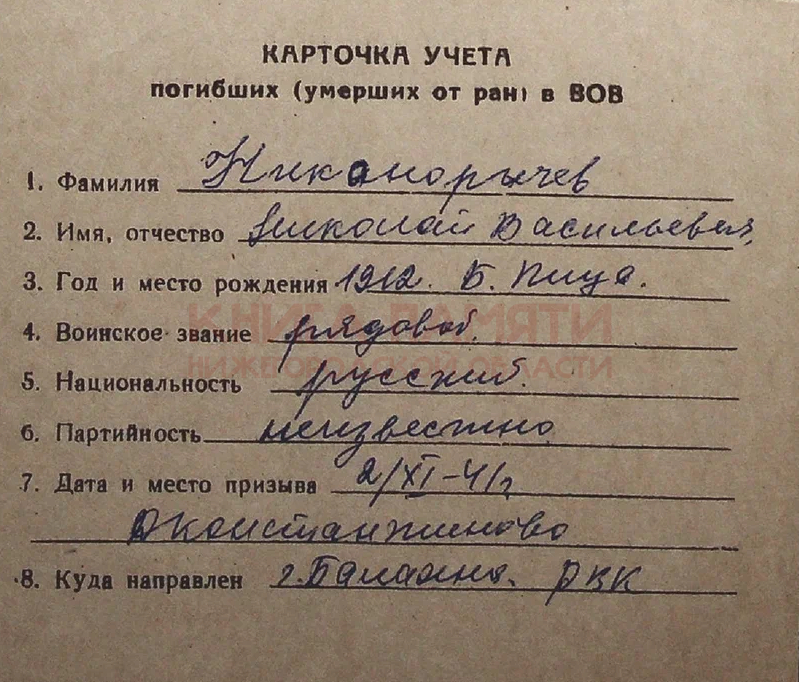 КАРТОЧКА УЧЕТА
погибших (умерших от ран) в ВОВ
1. Фамилия Никанорычев
2. Имя, отчество Николай Васильевич
3. Год и место рождения 1912. Б. Пица.
КНИГА ПАМЯТИ
4. Воинское звание рядовой.
НИЖЕГОРОДСКОЙ ОБЛАСТИ
5. Национальность русский.
6. Партийность неизвестно
7. Дата и место призыва 2/XI-41г
Дконстантиново
8. Куда направлен г. Балахна. РВК